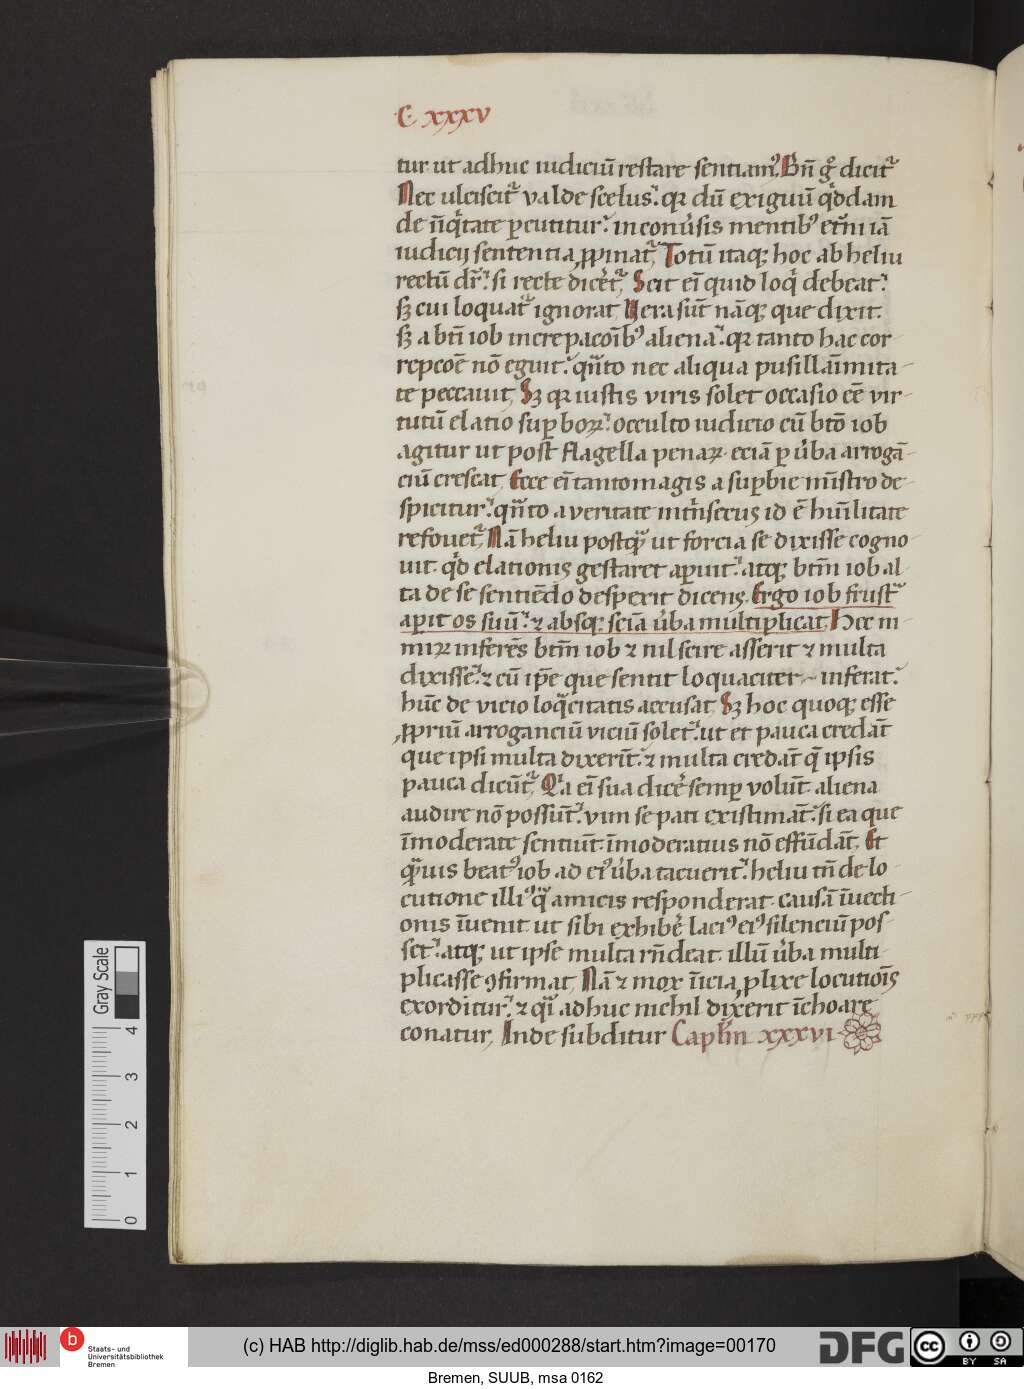 C· xxxv
tur ut adhuc iudiciū restare sentiamꝰ. Bn̄ gͦ dicitᷣ
Nec ulciscitᷣ valde scelus. qꝛ dū exiguū qͦddam
de īiqͥtate ꝑcutitur. in conūsis mentibꝰ et̄ni iā
iudicij sententia ꝓpinatᷣ. Totū itaqꝫ hoc ab heliu
rectū dr̄. si recte dicētᷣ. Scit ei̅ quid loqͥ debeat.
sꝫ cui loquatᷣ ignorat. Uera sūt nāqꝫ que dixit.
sꝫ a bt̄i iob increpacoībꝰ aliena. qꝛ tanto hac cor-
repcoē nō eguit. qn̄to nec aliqua pusillaīmita-
te peccauit. Sꝫ qꝛ iustis viris solet occasio eē vir-
tutū elatio suꝑboꝝ. occulto iudicio cū bt̄o iob
agitur ut post flagella penaꝝ. eciā ꝑ ūba arrogā-
ciū crescat. Ecce ei̅ tantomagis a suꝑbie mīstro de-
spicitur. qn̄to a veritate int̄nsecus id ē hūilitate
refouetᷣ. Nā heliu postqᷓ ut forcia se dixisse cogno-
uit. qͦd elationis gestaret aꝑuit. atqꝫ btm̄ iob al-
ta de se sentiēdo desperit dicens. Ergo iob frustᷓ
aꝑit os suū. ⁊ absqꝫ scīa ūba multiplicat. Hec ni-
miꝝ inferēs btm̄ iob ⁊ nil scire asserit ⁊ multa
dixisse. ⁊ cū ip̄e que sentit loquaciter inferat.
hūc de vicio loqͣcitatis accusat. Sꝫ hoc quoqꝫ esse
ꝓpriū arroganciū viciū solet. ut et pauca credāt
que ipsi multa dixerīt. ⁊ multa credāt q̄ ipsis
pauca dicūtᷣ. Qͥa ei̅ sua dicē semꝑ volūt. aliena
audire nō possūt. vim se pati existimāt. si ea que
īmoderate sentiūt. īmoderatius nō effūdāt. Et
qᷓuis beatꝰ iob ad eiꝰ ūba tacuerit. heliu tn̄ de lo-
cutione illiꝰ qᷓ amicis responderat. causā īuecti-
onis īuenit. ut sibi exhibē laciꝰ eiꝰ silenciū pos-
set. atqꝫ ut ipse multa rn̄deat. illū ūba multi-
plicasse ꝯfirmat. Nā ⁊ mox īicia ꝓlixe locutiōis
exorditur. ⁊ qͣi adhuc nichil dixerit īchoare
conatur. Inde subditur Caplm̄ xxxvi
Gray Scale
4
3
2
1
0
b
Staats- und
Universitätsbibliothek
Bremen
(c) HAB http://diglib.hab.de/mss/ed000288/start.htm?image=00170
DFG
cc
BY SA
Bremen, SUUB, msa 0162